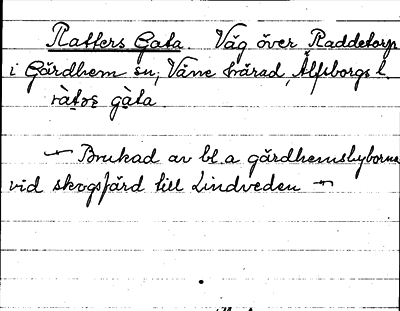 Ratters Gata. Väg över Raddetorp
i Gärdhem sn, Väne härad, Älfsborgs l.
ràtəs gàta.
⁓ Brukad av bl.a gärdhemsbyborna
vid skogsfärd till Lindveden ⁓